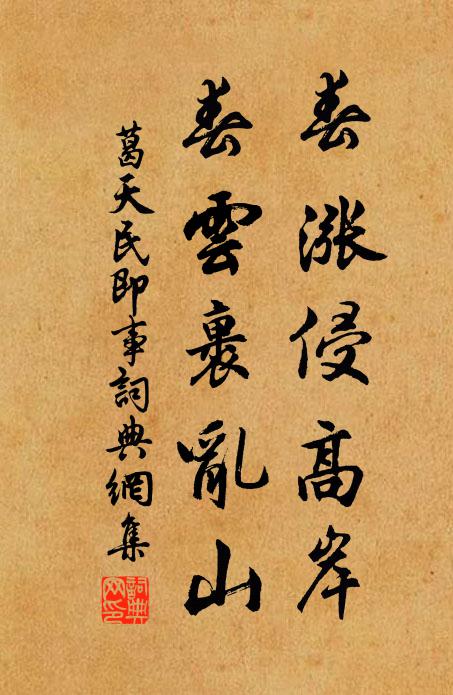 春漲侵高岸
春雲裹亂山
葛天民即事詞典網集
詞典网印